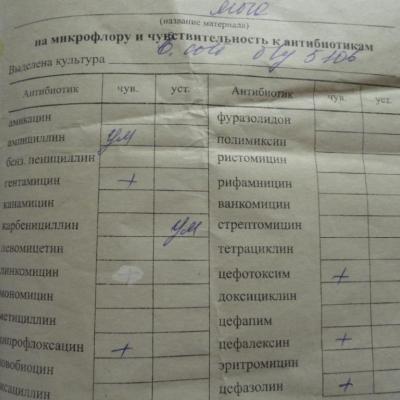 моча
(название материала)
на микрофлору и чувствительность к антибиотикам
Выделена культура E. coli
Антибиотик чув. уст. Антибиотик чув. уст.
амикацин фуразолидон
ампициллин ум полимиксин
бенз. пенициллин ристомицин
гентамицин + рифамницин
канамицин ванкомицин
карбенициллин ум стрептомицин
левомицетин тетрациклин
линкомицин цефотоксим +
мономицин доксициклин
метициллин цефапим
ципрофлоксацин + цефалексин +
новобиоцин эритромицин
оксациллин цефазолин +